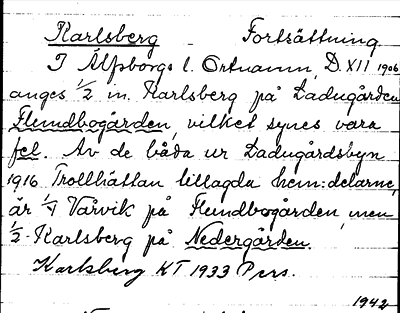 Karlsberg Fortsättning
I Älfsborgs l. Ortnamn, D. XII 1906
anges 1/2 in. Karlsberg på Ladugården
Flundbogården, vilket synes vara
fel. Av de båda ur Ladugårdsbyn
1916 Trollhättan tillagda hem:delarne,
är 1/4 Vårvik på Flundbogården, men
1/2 Karlsberg på Nedergården.
Karlsberg KT 1933 Pers.
1942